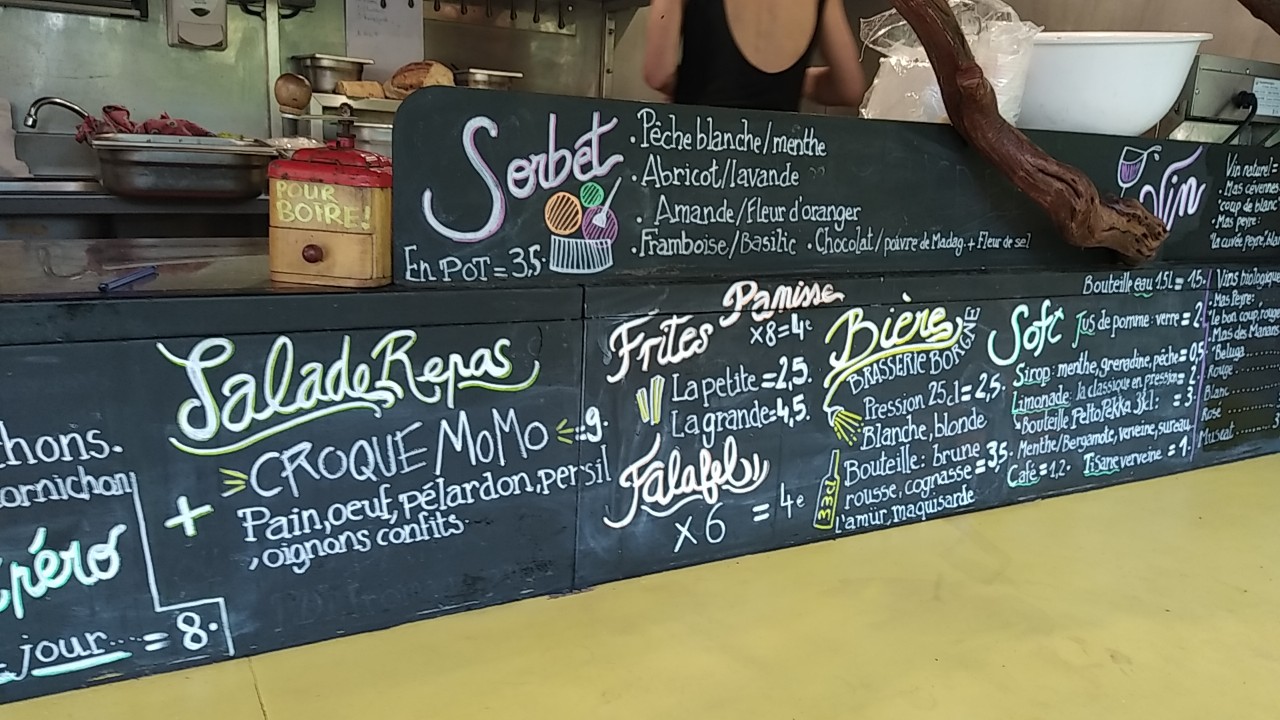 POUR
BOIRE!
Sorbét
En POT = 3,5.
• Pêche blanche/menthe
• Abricot/lavande
• Amande/Fleur d'oranger
• Framboise/Basilic • Chocolat/poivre de Madag. + Fleur de sel
Vin
Vin naturel =
• Mas cévennes
coup de blanc
• Mas peyre:
chons.
cornichon
péro
jour.... = 8.
Salade Repas
+ CROQUE MOMO = 9.
Pain, oeuf, pélardon, persil
, oignons confits.
Panisse
x8 = 4e
Frites
La petite = 2,5.
La grande = 4,5.
Falafels
x 6 = 4e
Bière
BRASSERIE BORGNE
Pression 25cl = 2,5.
Blanche, blonde
33cl
Bouteille: brune = 3,5.
rousse, cognasse
l'amür, maquisarde
Bouteille eau 1.5L = 1,5.
Soft
Jus de pomme: verre = 2.
Sirop: menthe, grenadine, pêche = 0,5
Limonade: la classique en pression = 2.
Bouteille Peltofekka 33cl: = 3.
Menthe/Bergamote, verveine, sureau
Café = 1,2. Tisane verveine = 1.
Vins biologique
• Mas Peyre:
le bon coup, rouge
• Mas des Manans
• Beluga..........
Rouge
Blanc ..........
Rosé ..........
Muscat ........ 3